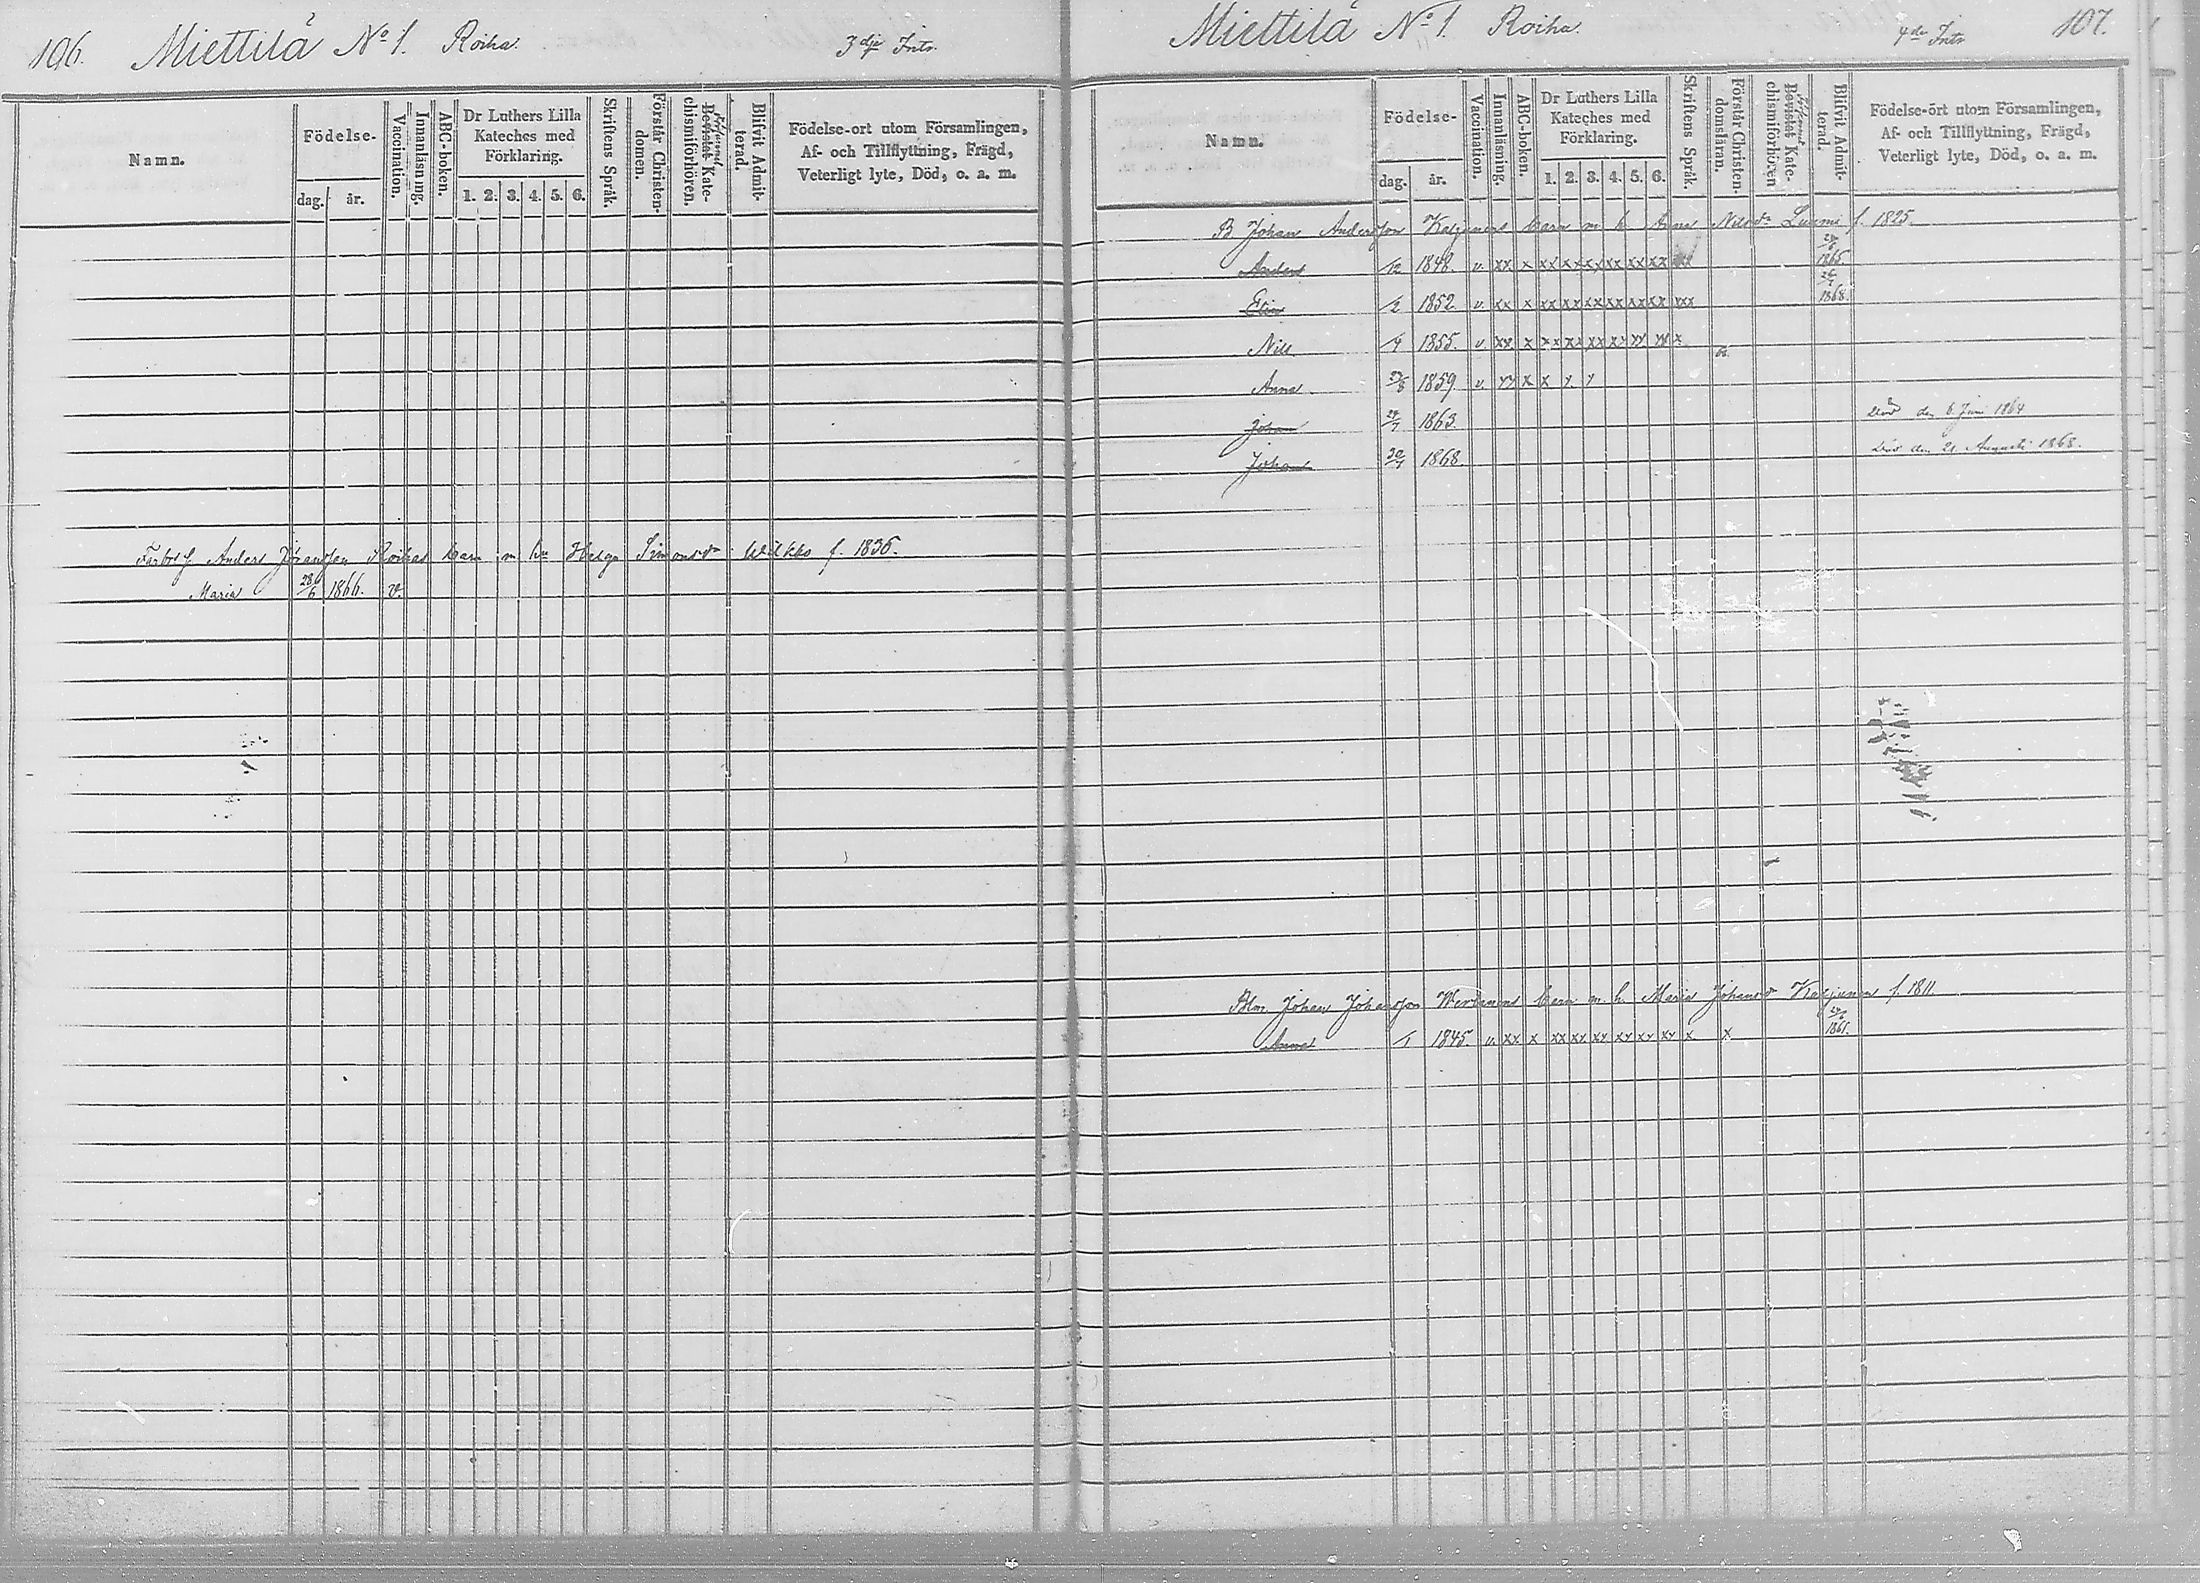 106. Miettilä No 1. Roiha. 3dje Intr.
Namn.
Födelse-
dag. år.
Vaccination.
Innanläsning.
ABC-boken.
Dr Luthers Lilla
Kateches med
Förklaring.
1. 2. 3. 4. 5. 6.
Skriftens Språk.
Förstår Christen-
domen.
Kate-
chismiförhören.
Blifvit Admit-
terad.
Födelse-ort utom Församlingen,
Af- och Tillflyttning, Frägd,
Veterligt lyte, Död, o. a. m.
Anders Roihas barn m Helga Simonsdr Wilkko f. 1836.
Maria 28/6 1866. v.
Miettilä No 1. Roiha. 4de Intr 107.
Namn.
Födelse-
dag. år.
Vaccination.
Innanläsning.
ABC-boken.
Dr Luthers Lilla
Kateches med
Förklaring.
1. 2. 3. 4. 5. 6.
Skriftens Språk.
Förstår Christen-
domsläran.
Kate-
chismiförhören
Blifvit Admit-
terad.
Födelse-ort utom Församlingen,
Af- och Tillflyttning, Frägd,
Veterligt lyte, Död, o. a. m.
B Johan Andersson Kaljunens barn m. h. Anna Nilsdr f. 1825.
Anders 1848. v. xx x xx xx xx xx xx xx 1865
Elin 1852 v. xx x xx xx xx xx xx xx xxx 1868.
Nils 1855. v. xx x xx xx xx xx xx xx x
Anna 1859 v. xx x x x x
Johan 1863. Död den 6 Juni 1864
Johan 1868. Död den 21 Augusti 1868.
Johan Johansson barn m. h. Maria Johansdr Kaljunen f. 1811.
Anna 1845. v. xx x xx xx xx xx xx xx x x 1861.